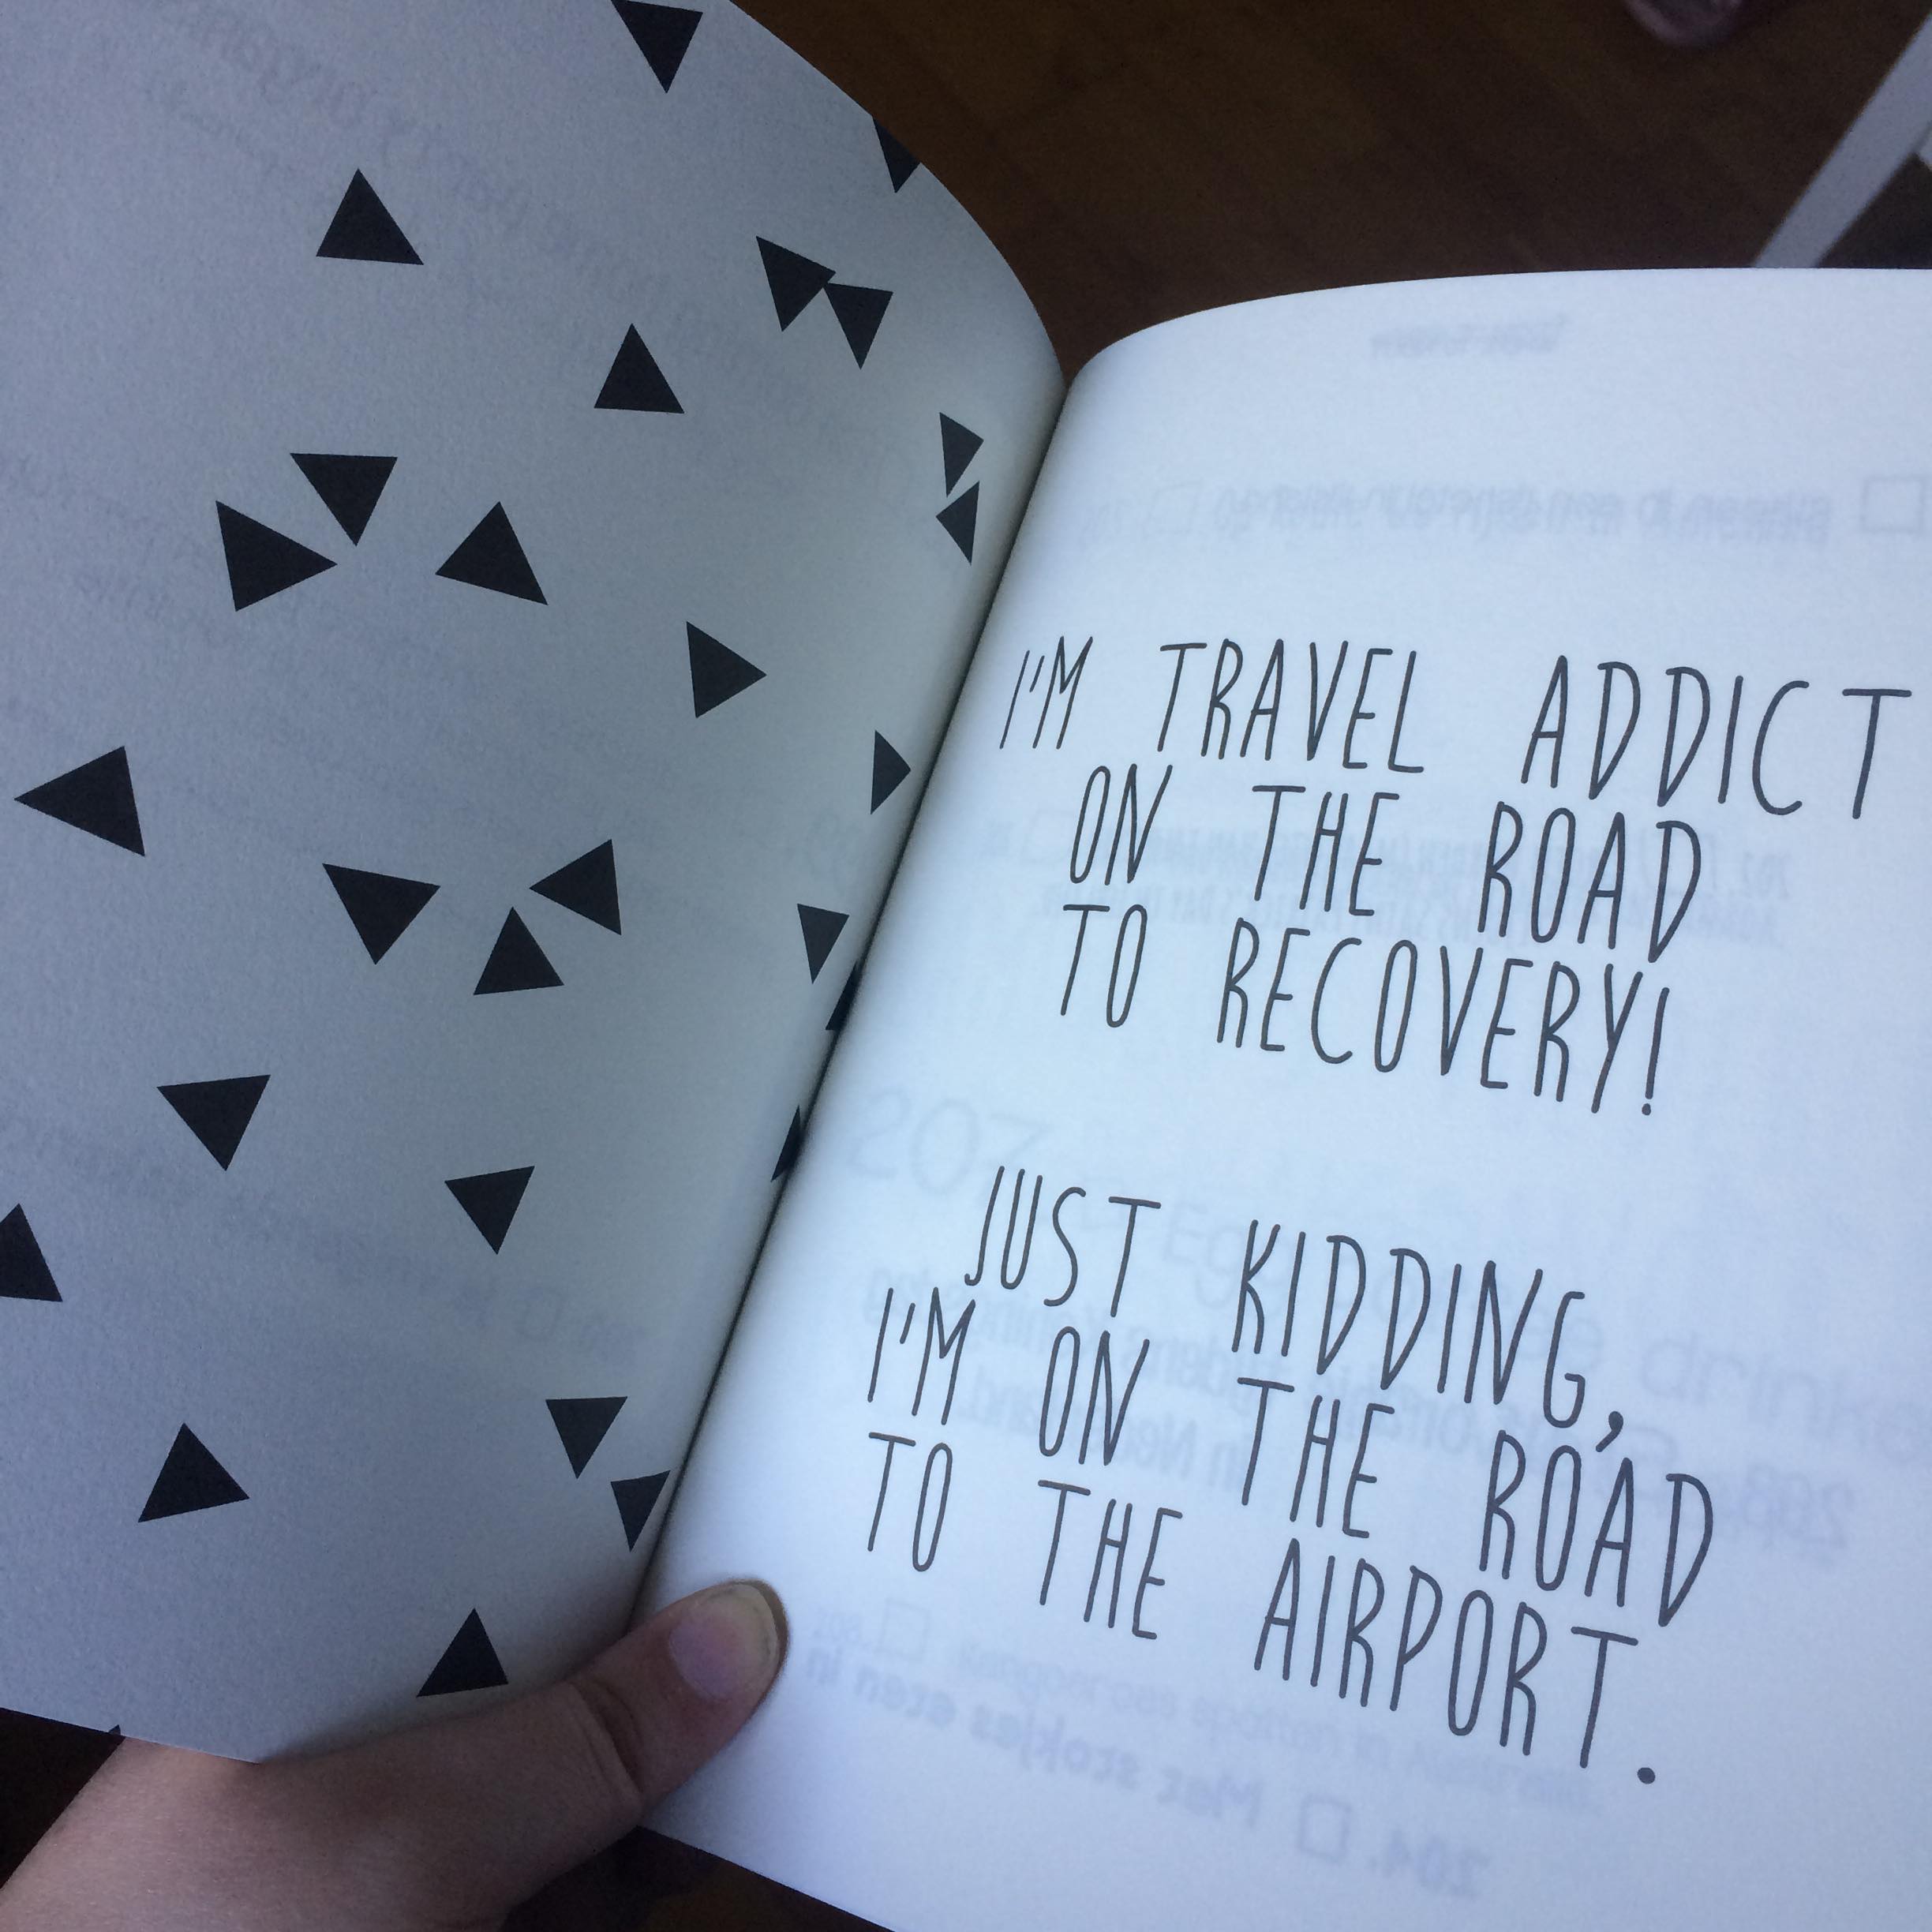 I'M TRAVEL ADDICT
ON THE ROAD
TO RECOVERY!
JUST KIDDING,
I'M ON THE ROAD
TO THE AIRPORT.